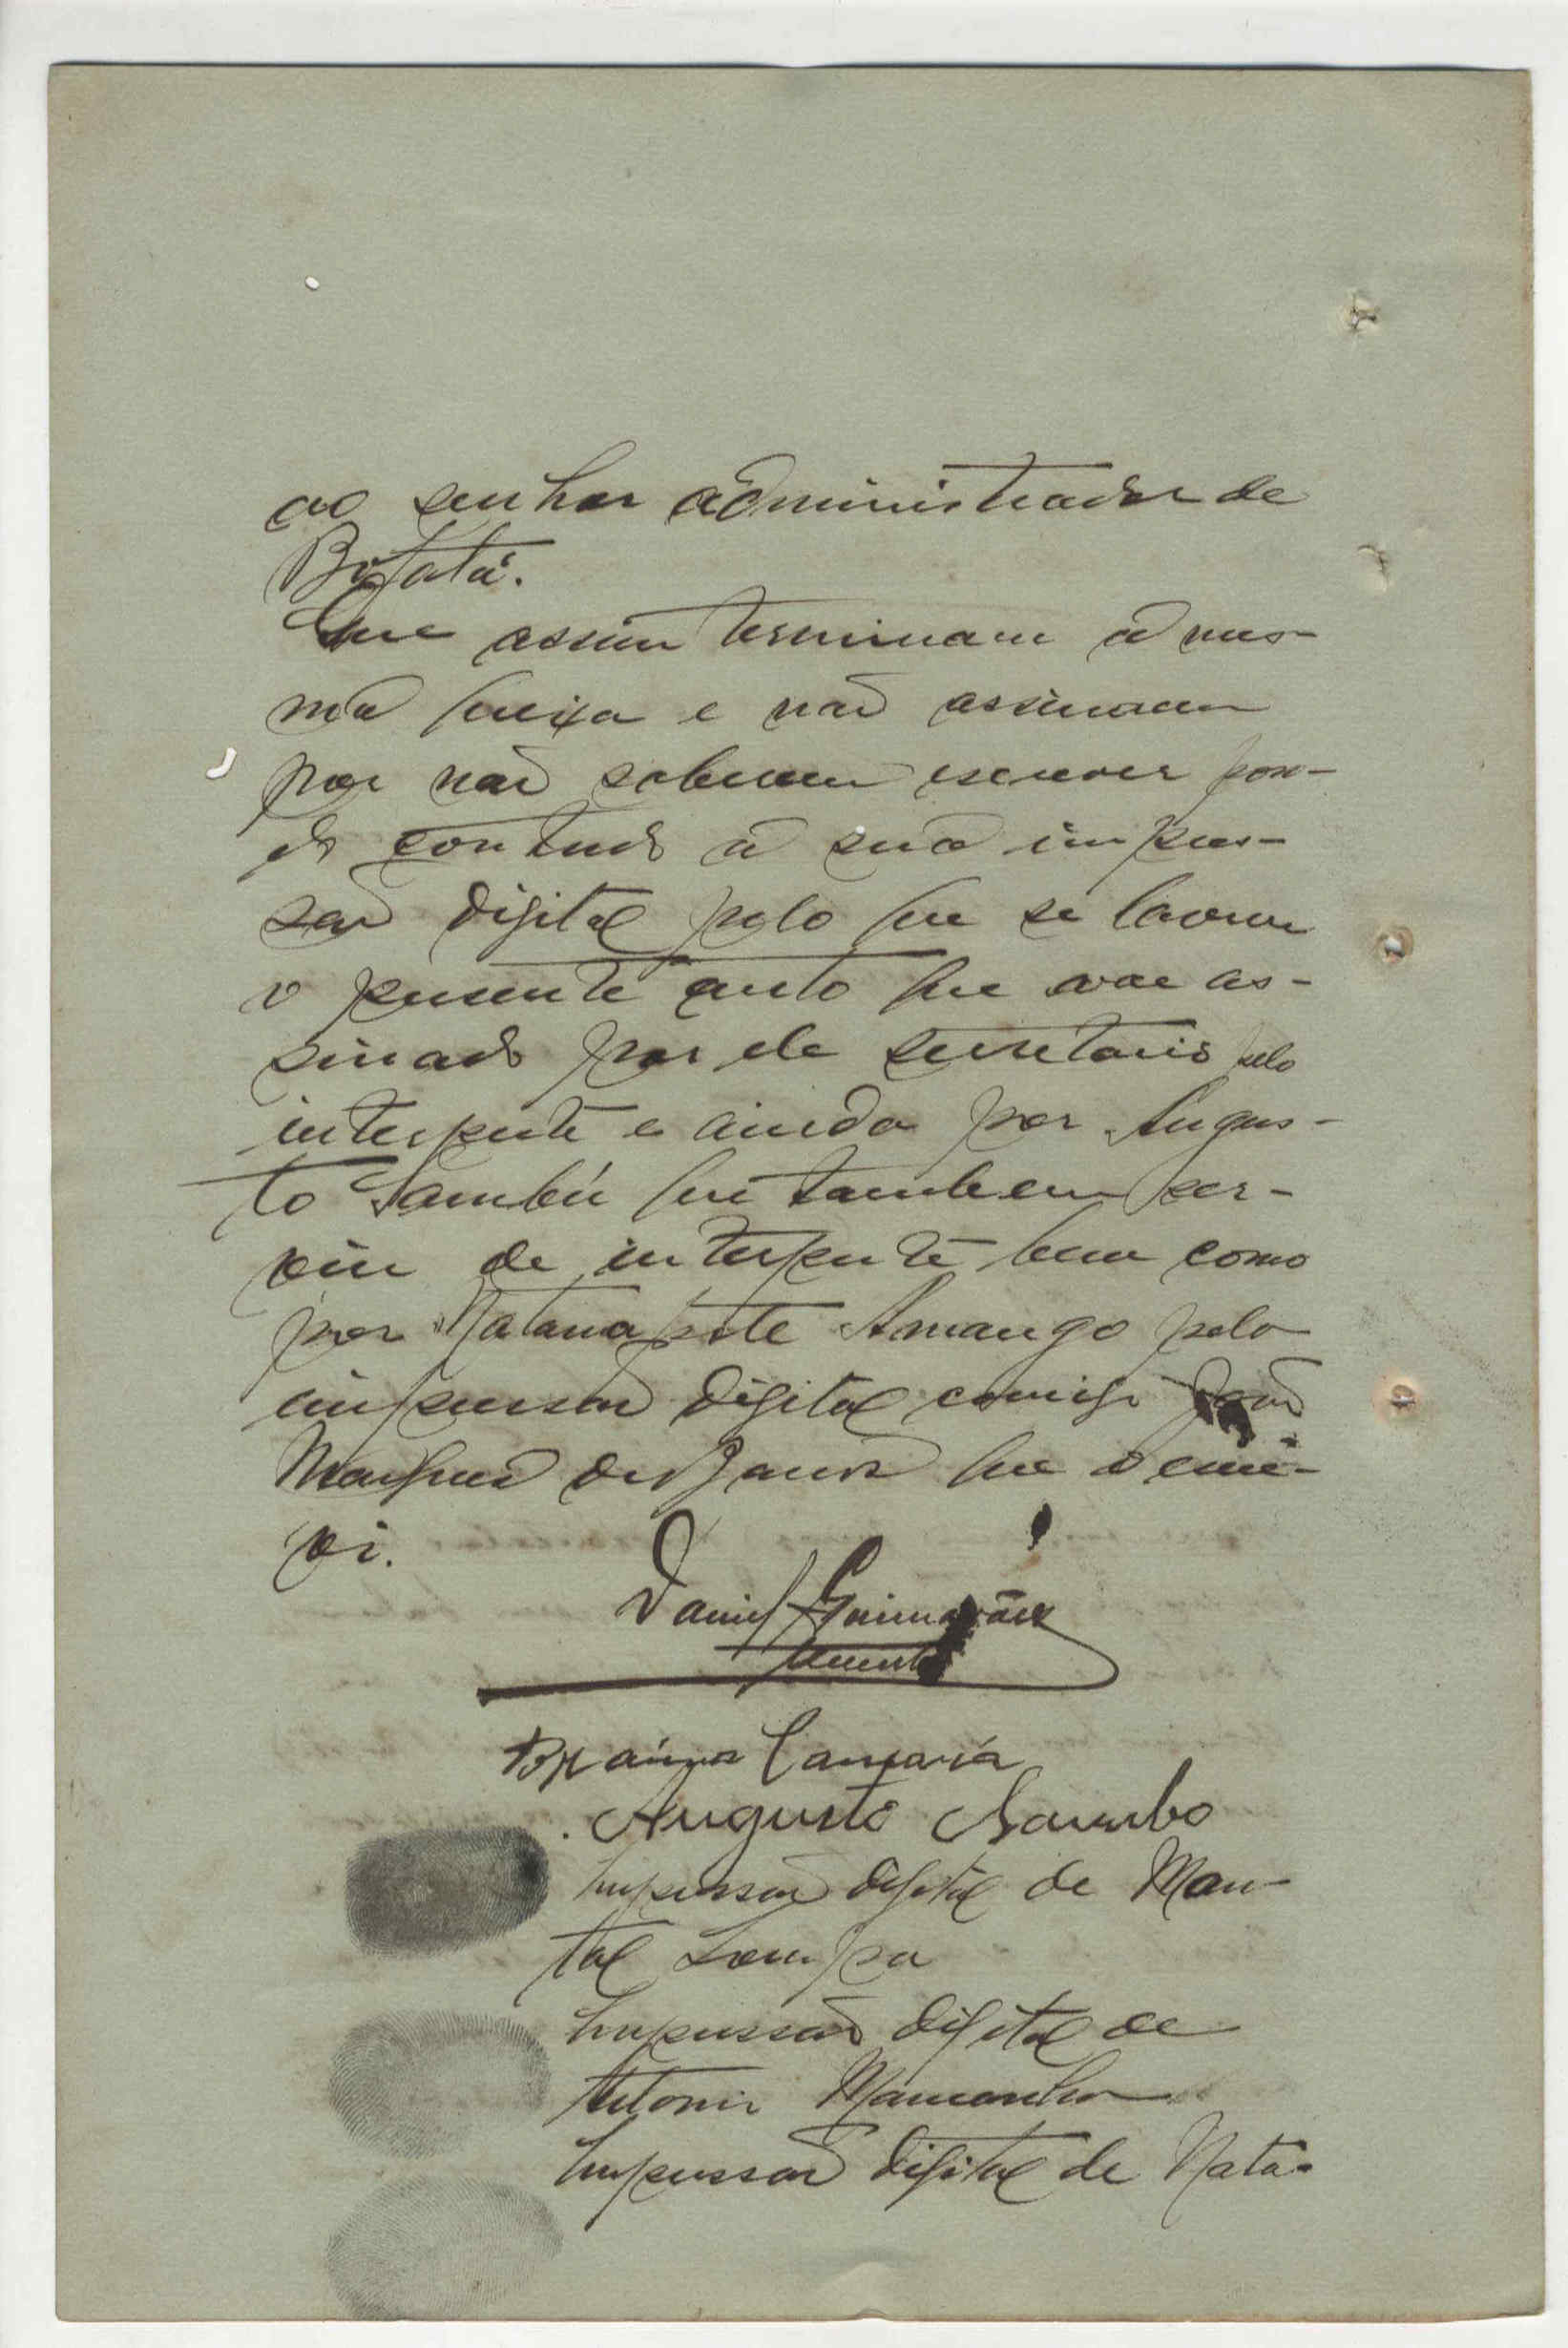 ao senhor administrador de
Bafatá.
Que assim terminam a mes-
ma queixa e não assinam
por não saberem escrever pon-
do contudo a sua impres-
são digital pelo que se lavrou
o presente auto que vae as-
sinado por ele secretario pelo
interprete e ainda por Augus-
to Sambú que tambem ser-
viu de interprete bem como
por Natana pote Amango pela
impressão digital comigo João
Marques que o escre-
vi.
Daniel Guimarães
Camará
Augusto Sambo
Impressão digital de Man-
tal Sampa
Impressão digital de
Antonio
Impressão digital de Nata-